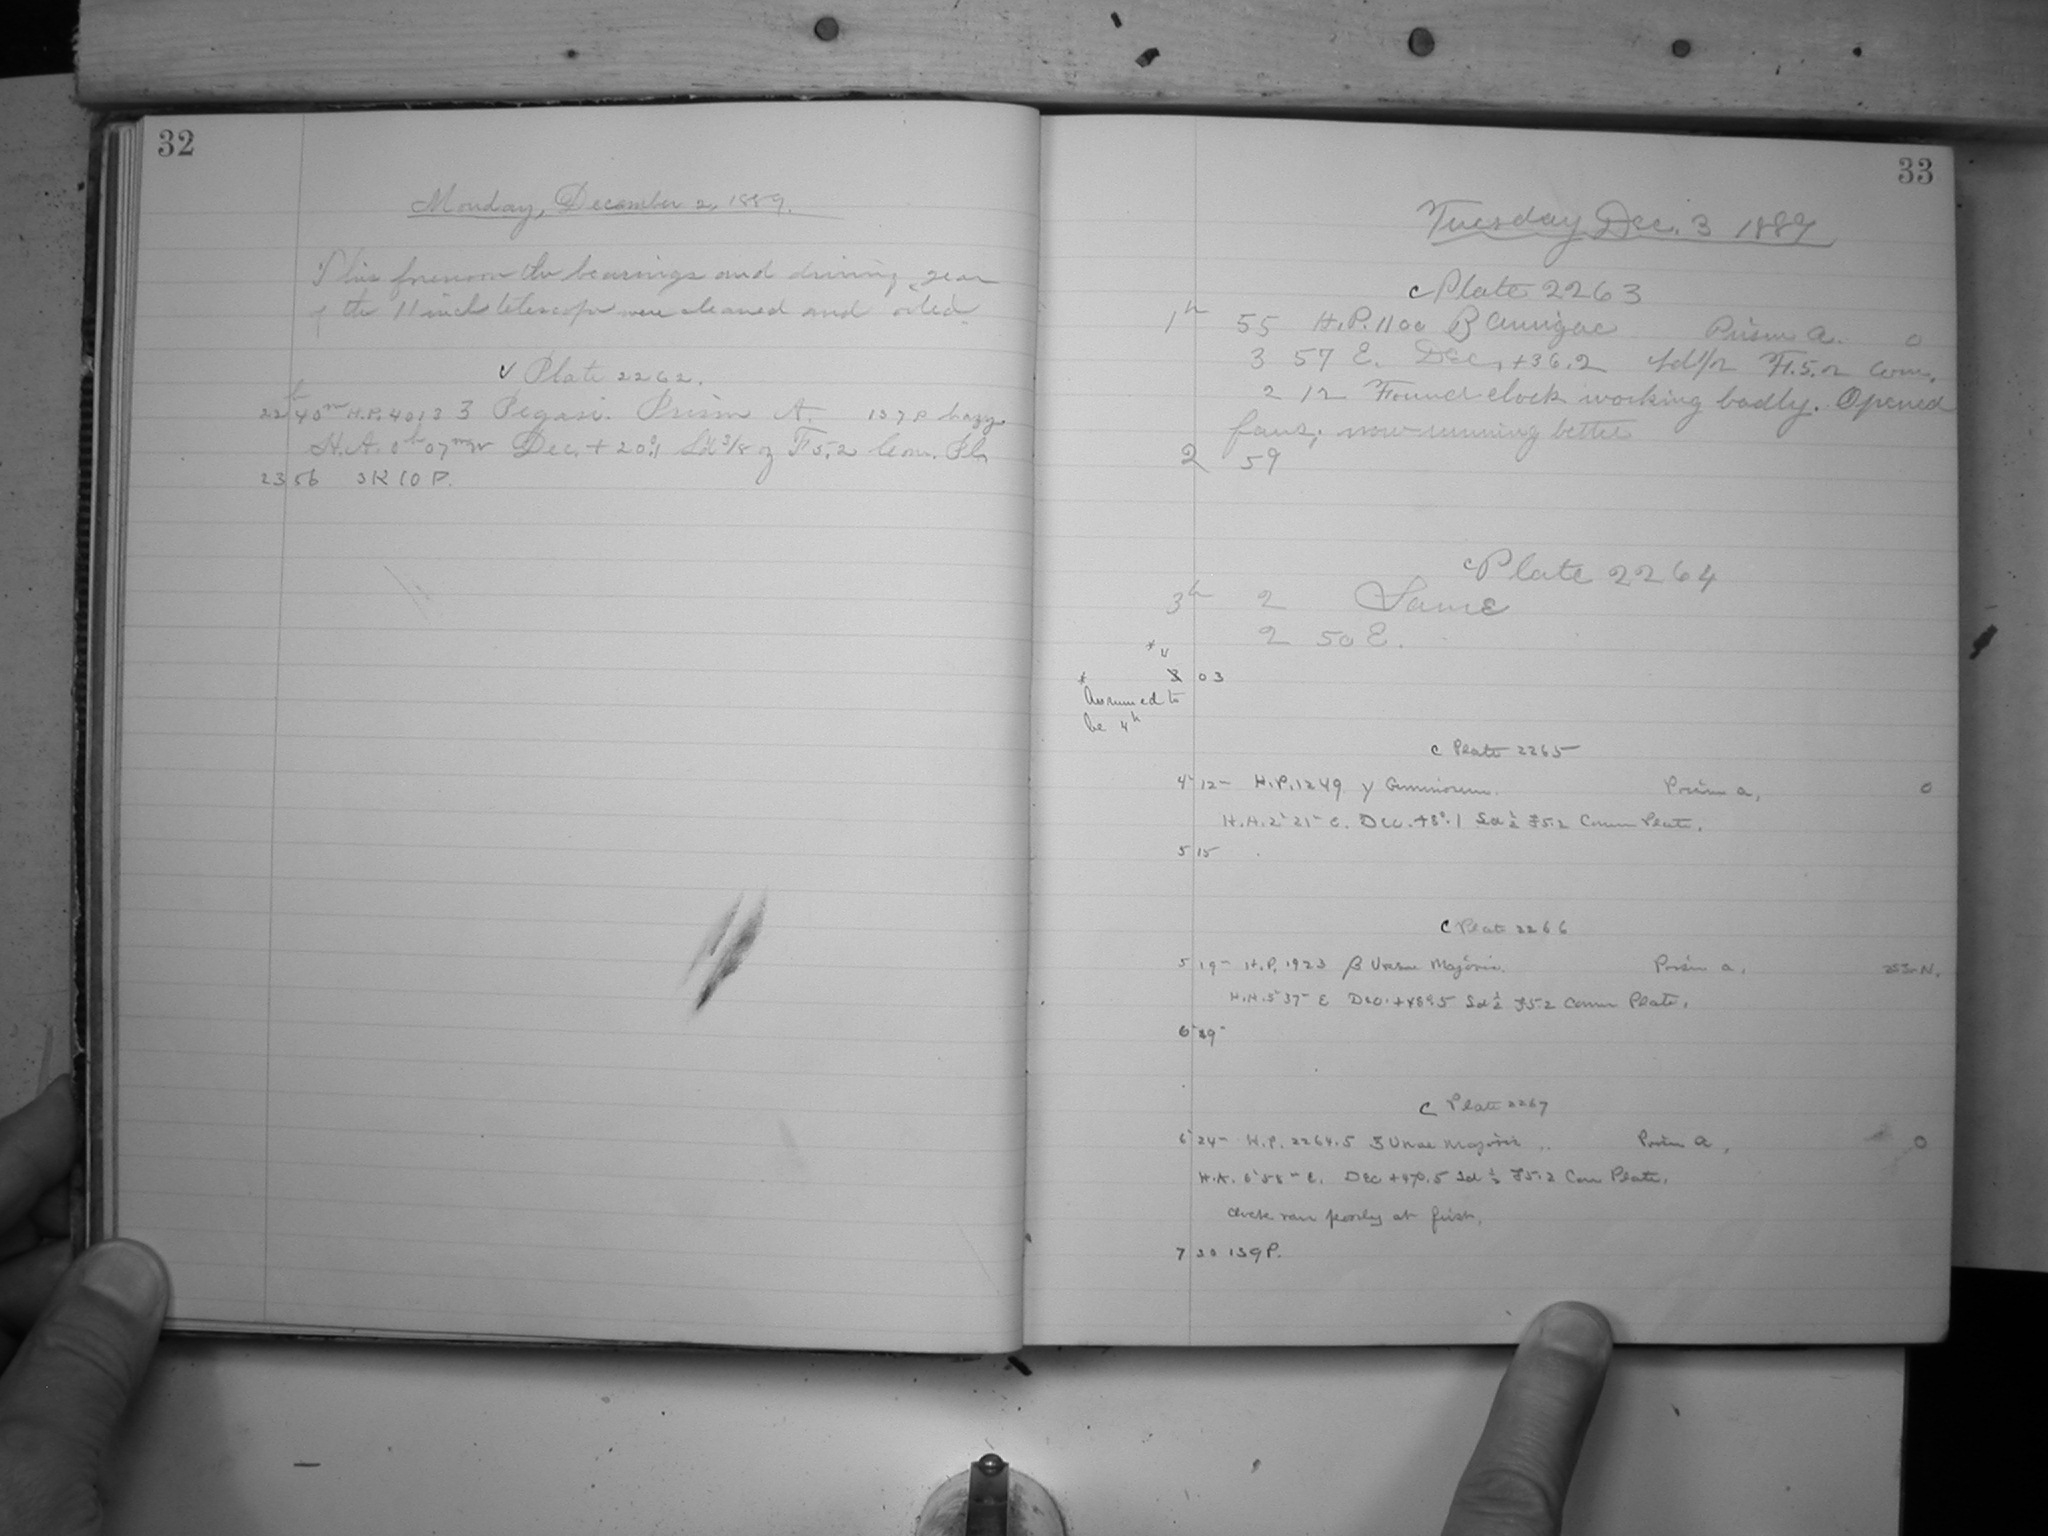 32
Monday, December 2, 1889.
This forenoon the bearings and driving gear
of the 11 inch telescope were cleaned and oiled.
v Plate 2262.
22h 40m H.P. 4013 3 Pegasi. Prism A. 137 P hazy.
H.A. 0h 07m W Dec. + 20°.1 Sd 3/8 of F5.2 Com. Pl.
23 56 3R10P.
33
Tuesday Dec. 3 1889
c Plate 2263
1h 55 H.P. 1100 β Aurigae Prism A. 0
3 57 E. Dec. +36.2 Sd 1/2 F.5.2 Com.
2 12 Found clock working badly. Opened
fans; now running better
2 59
c Plate 2264
3h 2 Same
2 50 E.
* 4
* 3 03
Assumed to
be 4h
c Plate 2265
4h 12m H.P. 1249 γ Geminorum. Prism A. 0
H.A. 2h 21m E. Dec. +8°.1 Sd 1/2 F5.2 Comm Plate.
5 15
c Plate 2266
5 19m H.P. 1923 β Ursae Majoris. Prism A.
H.A. 5h 37m E Dec. +48°.5 Sd 1/2 F5.2 Comm Plate.
6 39m
c Plate 2267
6h 24m H.P. 2264.5 Ursae Majoris Prism A. 0
H.A. 6h 58m E. Dec +47°.5 Sd 1/2 F5.2 Com Plate.
Clock ran poorly at first.
7 30 139P.